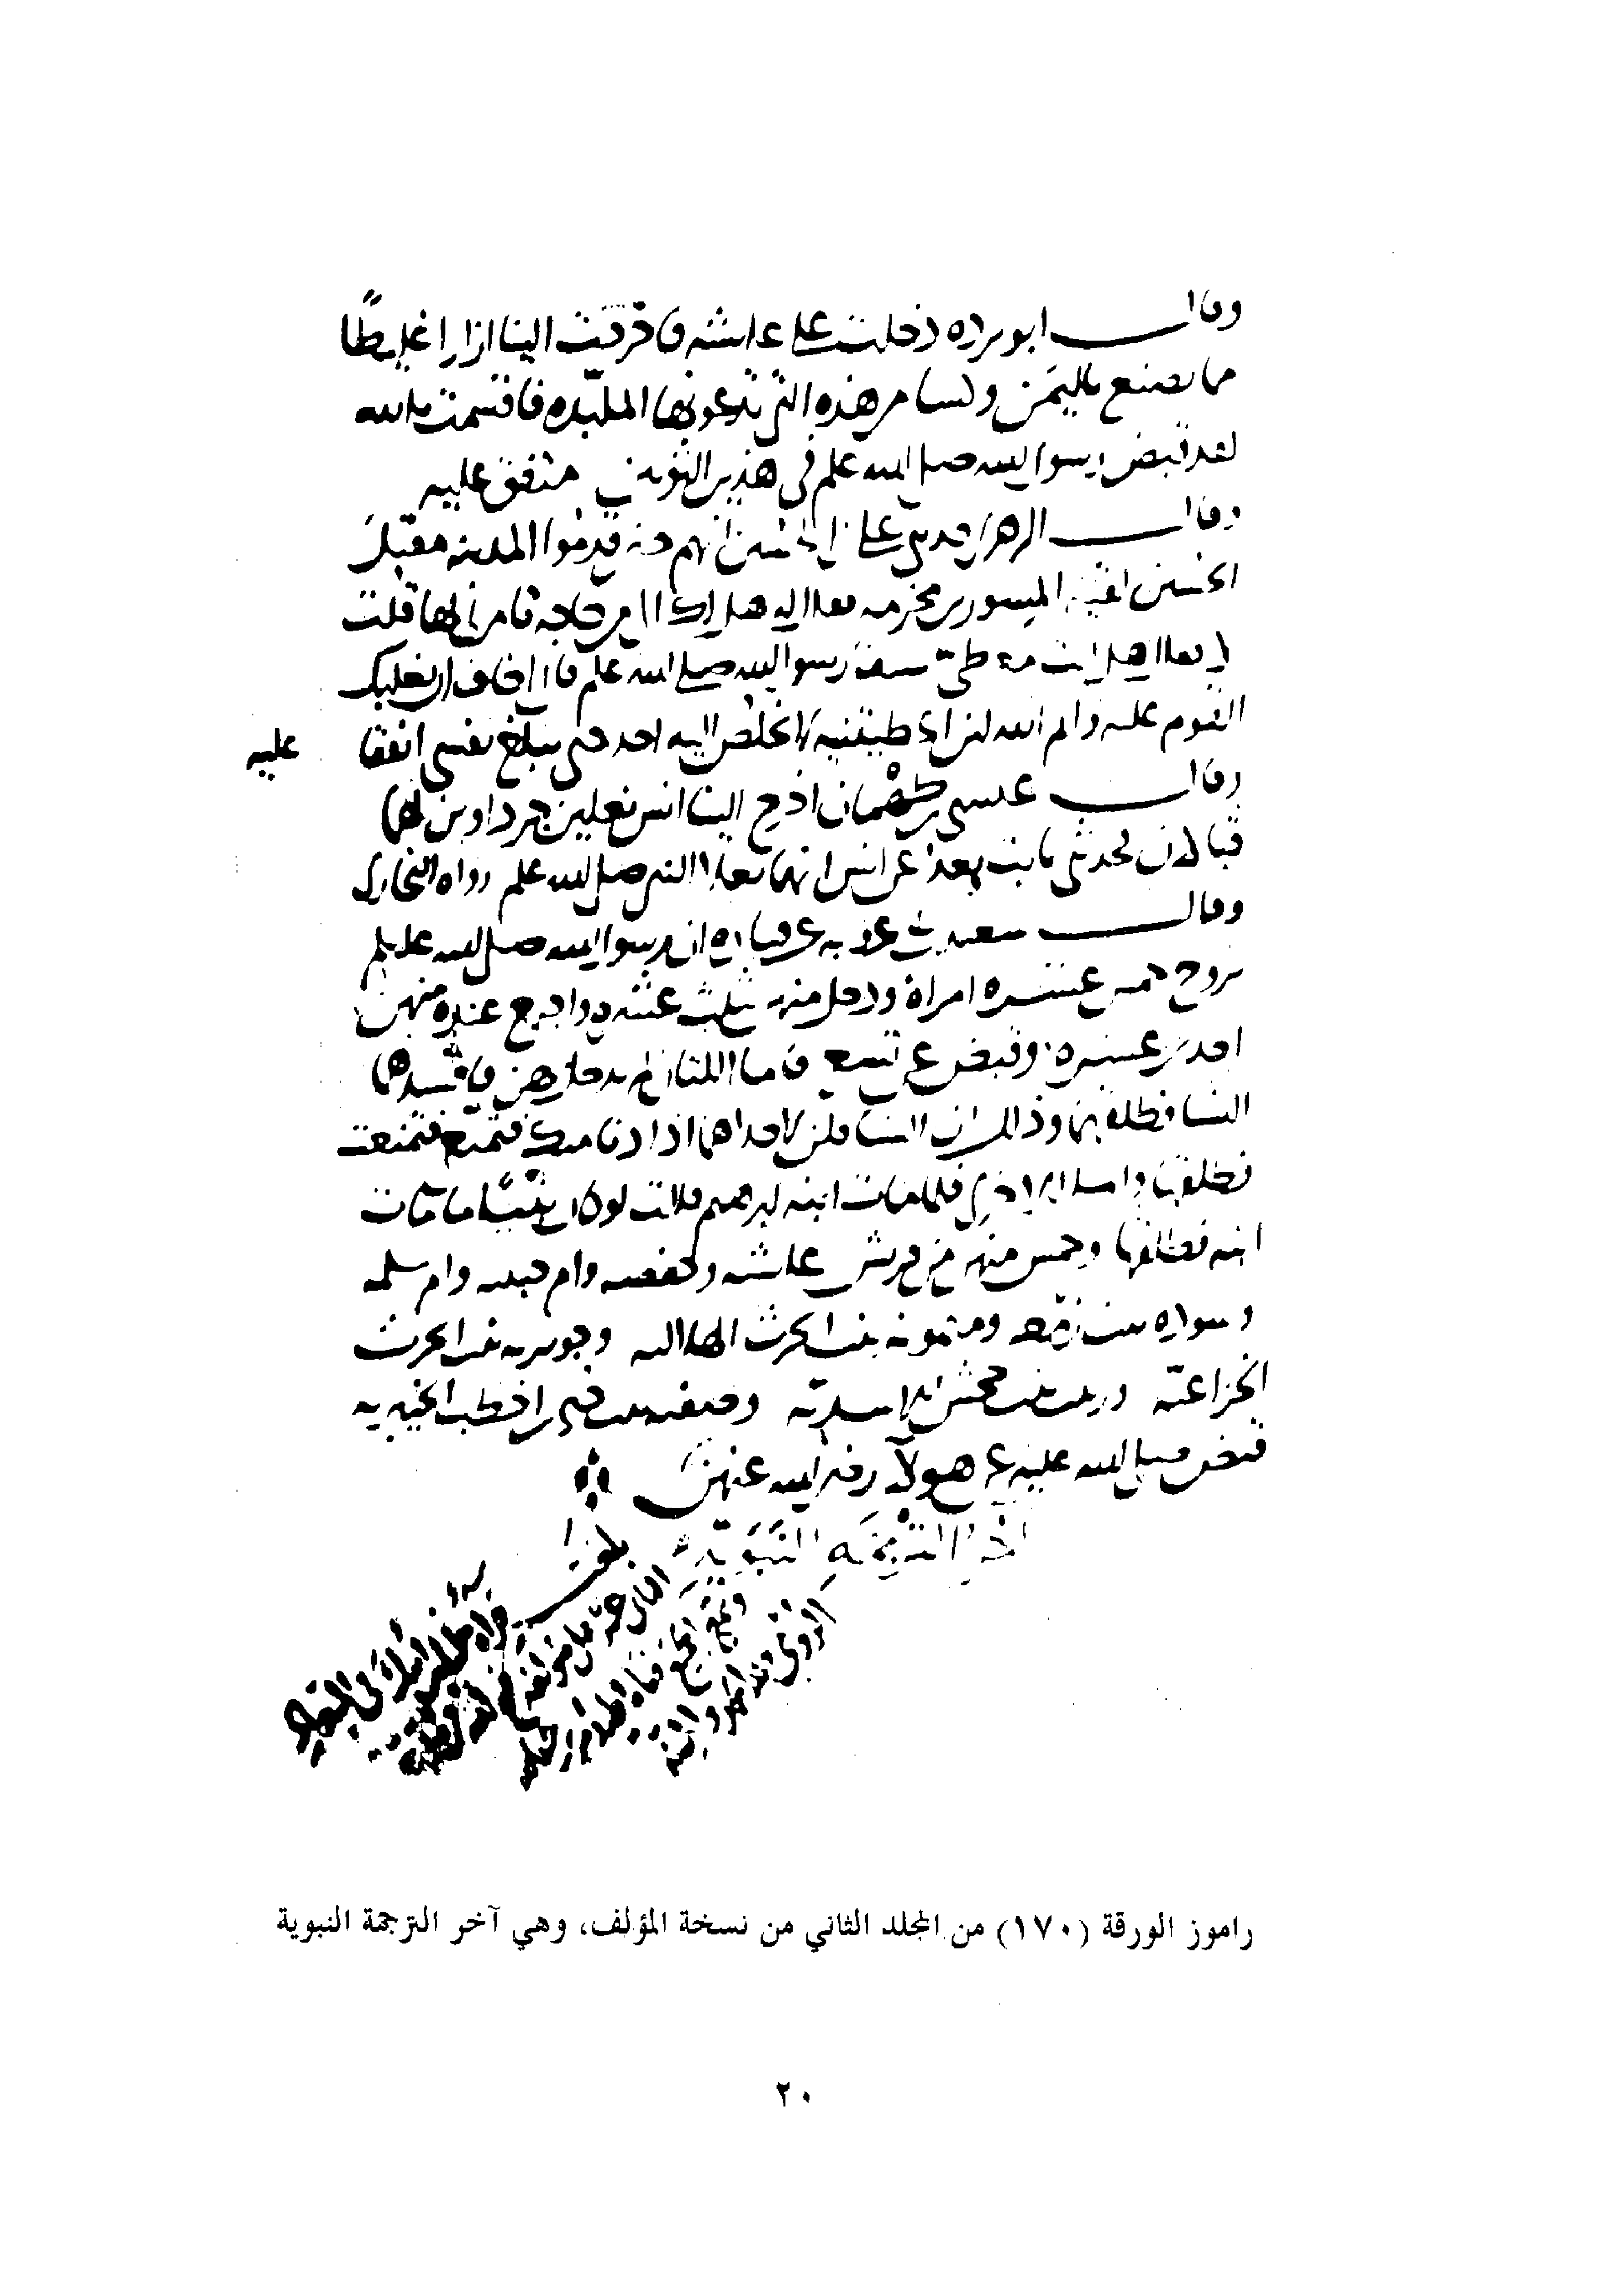 وقال ابو برده دخلت على عائشه فاخرجت الينا ازارا غليظًا
مما يصنع باليمن وكسا من هذه التي تدعونها الملبّده فاقسمت بالله
لقد قبض رسول الله صلى الله عليه وسلم في هذين الثوبين متفق عليه
وقال الزهري حدثني علي بن الحسين انهم حين قدموا المدينه مقتل
الحسين لقيه المسور بن مخرمه فقال له هل لك الي من حاجة تامرني بها قلت
لا فقال هل انت معطيّ سيف رسول الله صلى الله عليه وسلم فاني اخاف ان يغلبك
القوم عليه وايم الله لئن اعطيتنيه لا يخلص اليه احد حتى يبلغ نفسي اتفقا عليه
وقال عيسى بن طهمان اخرج الينا انس نعلين جرداوين لهما
قبالان فحدثني ثابت بعد عن انس انهما نعلا النبي صلى الله عليه وسلم رواه البخاري
وقال سعيد بن ابي عروبه عن قتاده ان رسول الله صلى الله عليه وسلم
تزوج خمس عشره امراة ودخل منهن بثلث عشره واجتمع عنده منهن
احدى عشره وقبض عن تسع فاما اللتان لم يدخل بهن فافسدهما
النسا فطلقهما وذلك ان النسا قلن لاحداهما اذا دنا منك فتمنعي فتمنعت
فطلقها واما الاخرى فلما مات ابنه ابرهيم قالت لو كان نبيًّا ما مات
ابنه فطلقها وخمس منهن من قريش عائشه وحفصه وام حبيبه وام سلمه
وسوده بنت زمعه وميمونه بنت الحرث الهلاليه وجويريه بنت الحرث
الخزاعيّه وزينب بنت جحش الاسديّه وصفيه بنت حيي بن اخطب الخيبريه
قبض صلى الله عليه وسلم عن هولآء رضي الله عنهن
آخر الترجمَه النبَويّه
راموز الورقة (١٧٠) من المجلد الثاني من نسخة المؤلف، وهي آخر الترجمة النبوية
٢٠